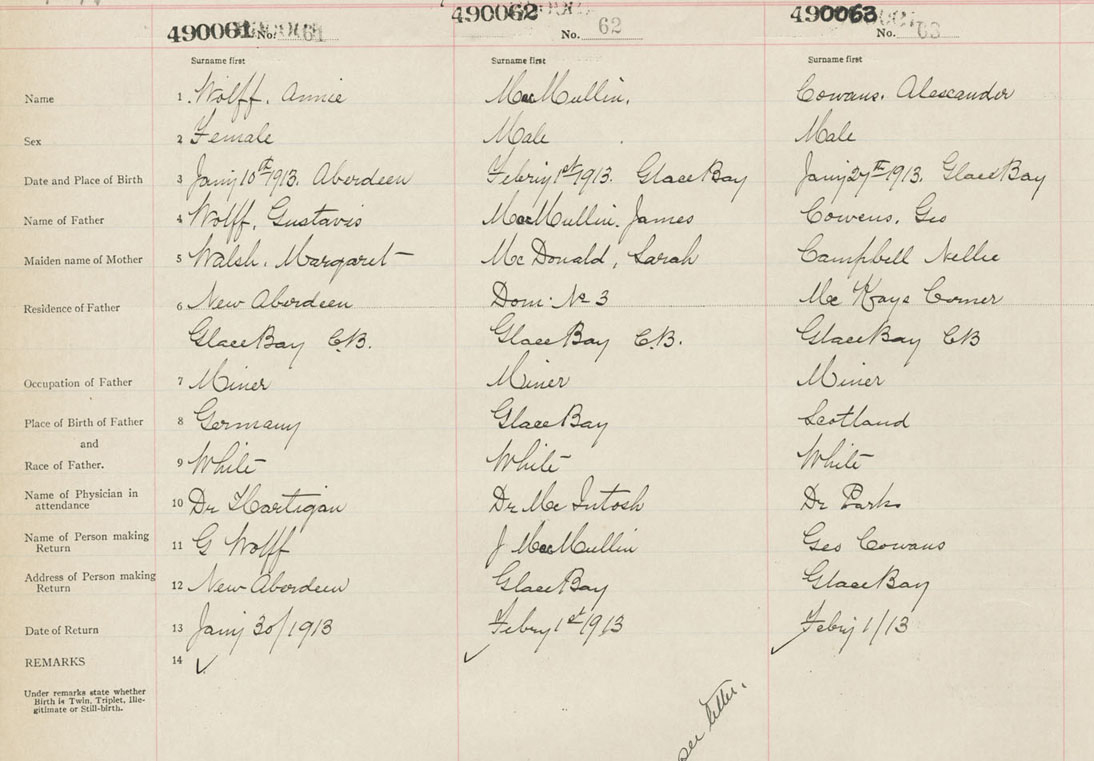 490061 No. 61
490062 No. 62
490063 No. 63
Surname first Surname first Surname first
Name 1 Wolff, Annie MacMullin, Cowans, Alescander
Sex 2 Female Male Male
Date and Place of Birth 3 Jany 10th 1913. Aberdeen Febry 1st 1913. Glace Bay Jany 27th 1913. Glace Bay
Name of Father 4 Wolff, Gustavis MacMullin, James Cowens, Geo
Maiden name of Mother 5 Walsh, Margaret McDonald, Sarah Campbell Nellie
Residence of Father 6 New Aberdeen Dom. No 3 McKays Corner
Glace Bay C.B. Glace Bay C.B. Glace Bay CB
Occupation of Father 7 Miner Miner Miner
Place of Birth of Father 8 Germany Glace Bay Scotland
and
Race of Father. 9 White White White
Name of Physician in
attendance 10 Dr Hartigan Dr McIntosh Dr Parks
Name of Person making
Return 11 G Wolff J MacMullin Geo Cowans
Address of Person making
Return 12 New Aberdeen Glace Bay Glace Bay
Date of Return 13 Jany 30/1913 Febry 1st 1913 Febry 1/13
REMARKS 14 ✓ ✓ ✓
Under remarks state whether
Birth is Twin, Triplet, Ille-
gitimate or Still-birth.
see letter.